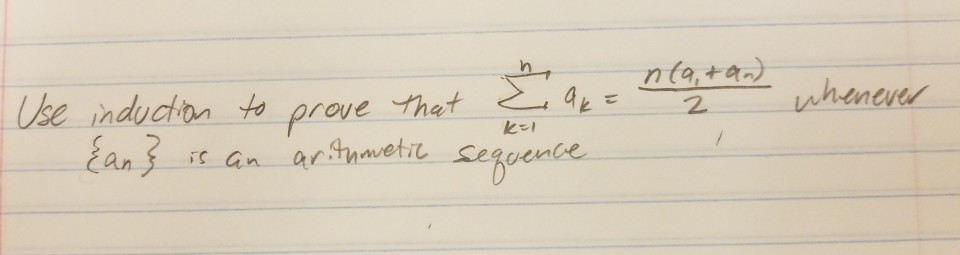 Use induction to prove that $\sum_{k=1}^{n} a_k = \frac{n(a_1+a_n)}{2}$ whenever
{an} is an arithmetic sequence